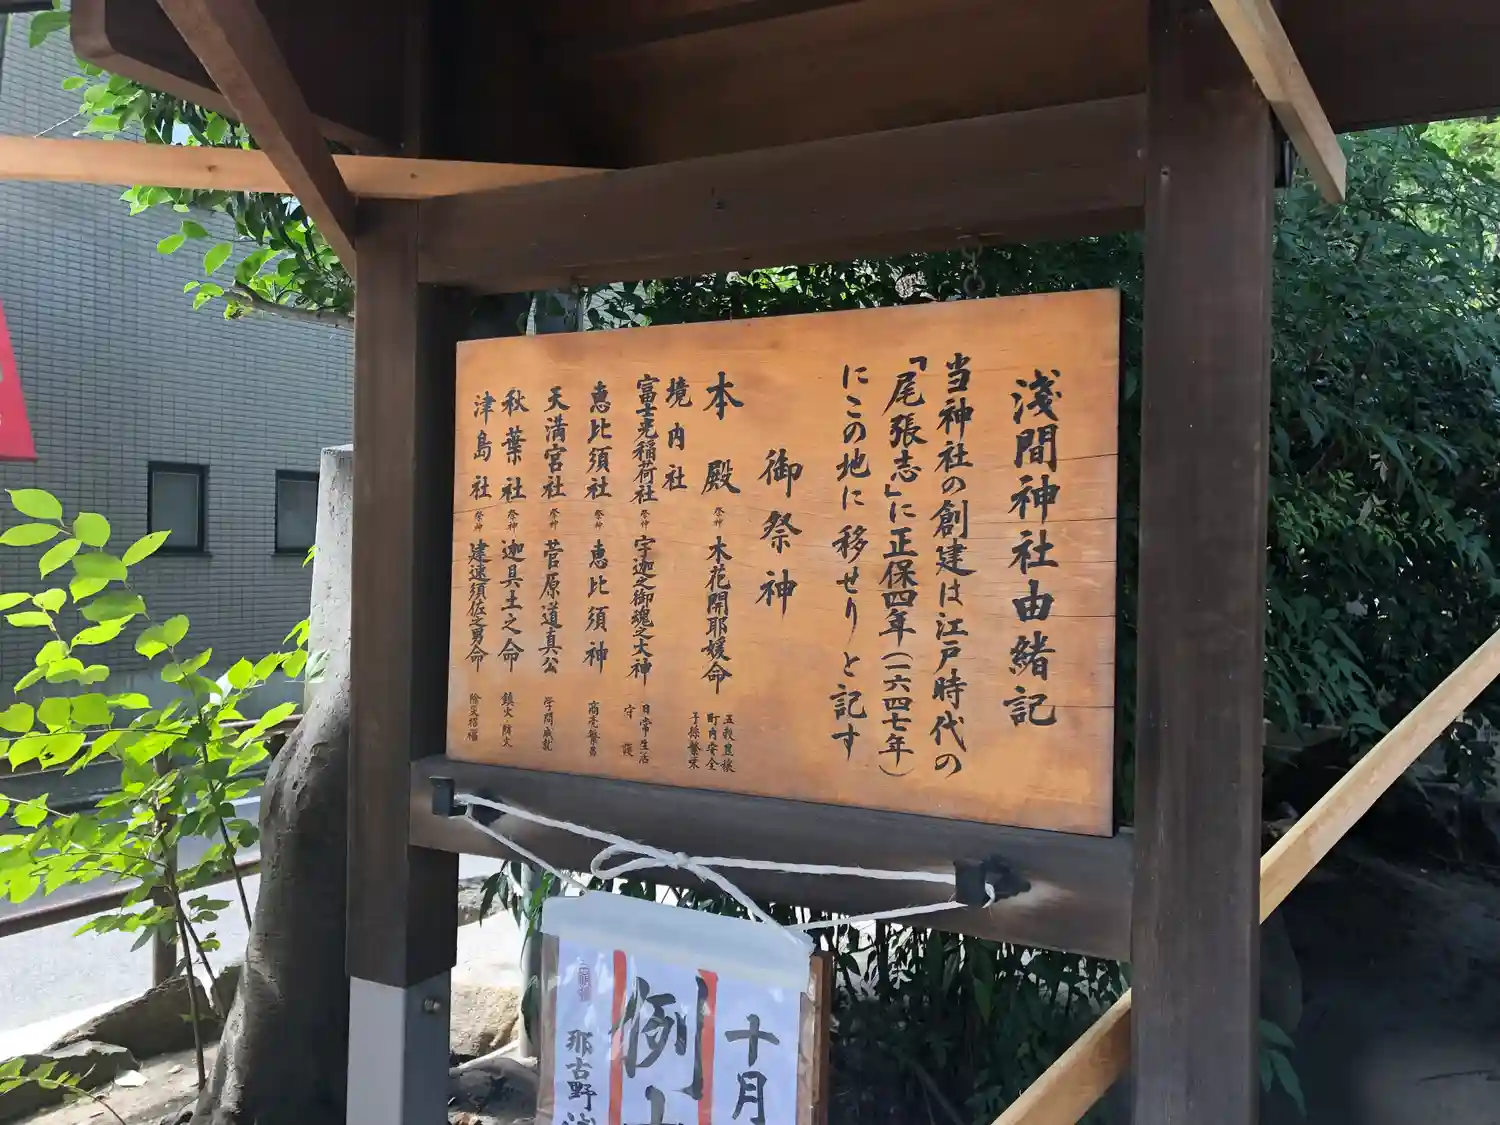 淺間神社由緒記
当神社の創建は江戸時代の
「尾張志」に正保四年(一六四七年)
にこの地に移せりと記す
御祭神
本殿 祭神 木花開耶媛命 五穀豊穣 町内安全 子孫繁栄
境内社
富士光稲荷社 祭神 宇迦之御魂之大神 日常生活守護
恵比須社 祭神 恵比須神 商売繁昌
天満宮社 祭神 菅原道真公 学問成就
秋葉社 祭神 迦具土之命 鎮火防火
津島社 祭神 建速須佐之男命 除災招福
十月
例
那古野浅